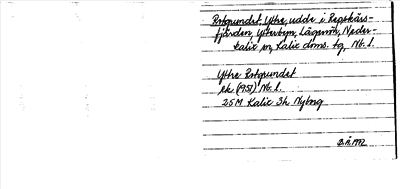 Rotgrundet, Yttre, udde i Repskärs-
fjärden, Ytterbyn, Lågsmor, Neder-
kalix sn, Kalix doms. tg, Nb. l.
Yttre Rotgrundet
ek. (1951) Nb. l.
25M Kalix 3h Nyborg
1992